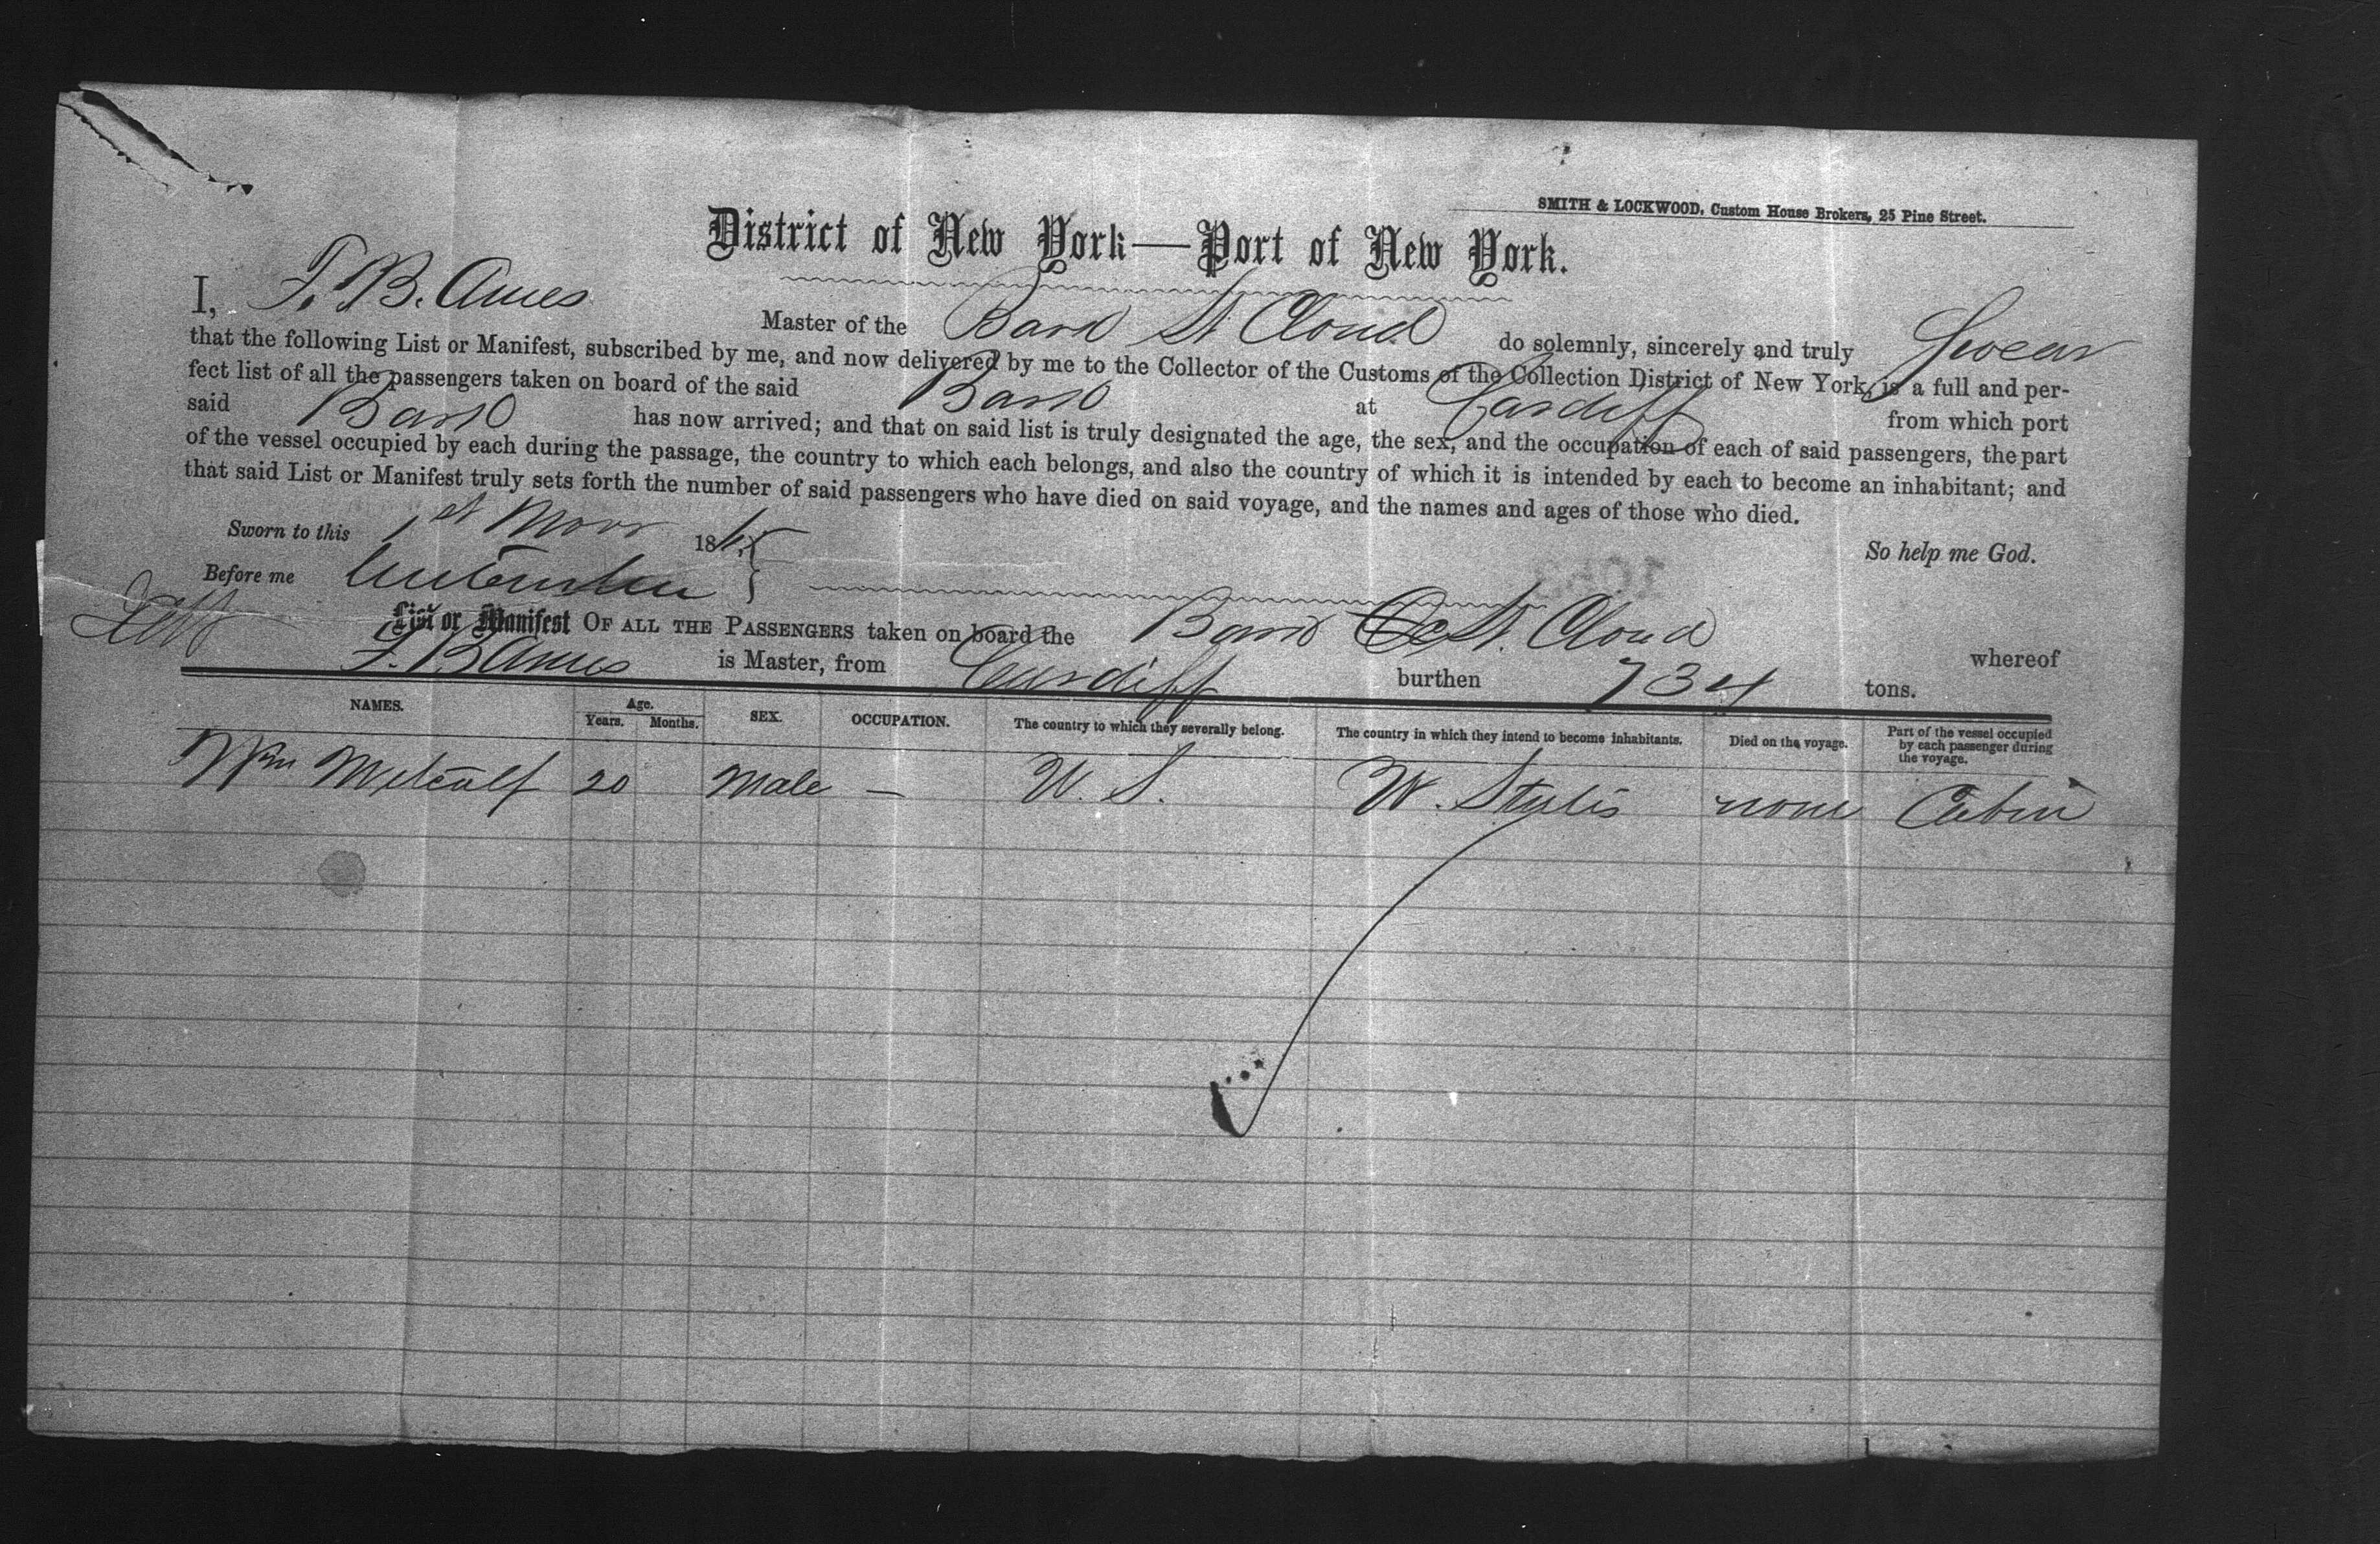 SMITH & LOCKWOOD, Custom House Brokers, 25 Pine Street.
District of New York—Port of New York.
I, F. B. Ames Master of the Bark St Cloud do solemnly, sincerely and truly Swear
that the following List or Manifest, subscribed by me, and now delivered by me to the Collector of the Customs of the Collection District of New York, is a full and per-
fect list of all the passengers taken on board of the said Bark at Cardiff from which port
said Bark has now arrived; and that on said list is truly designated the age, the sex, and the occupation of each of said passengers, the part
of the vessel occupied by each during the passage, the country to which each belongs, and also the country of which it is intended by each to become an inhabitant; and
that said List or Manifest truly sets forth the number of said passengers who have died on said voyage, and the names and ages of those who died.
So help me God.
Sworn to this 1st Novr 1865
Before me
List or Manifest OF ALL THE PASSENGERS taken on board the Bark St. Cloud whereof
F. B Ames is Master, from Cardiff burthen 734 tons.
NAMES. Age. Years. Months. SEX. OCCUPATION. The country to which they severally belong. The country in which they intend to become inhabitants. Died on the voyage. Part of the vessel occupied by each passenger during the voyage.
Wm Metcalf 20 Male — U. S. U. States none Cabin